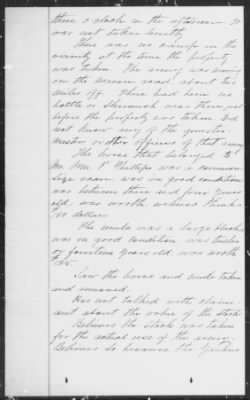 three o clock in the afternoon. It
was not taken secretly
There was no encamp in the
vicinity at the time the property
was taken. The army was
on the Macon road about two
miles off. There had been no
battle or skirmish was there just
before the property was taken. Did
not know any of the quarter
master or other officers of that army
The horse that belonged to
Mr. Wm. P. Phillips was a common
size mare. was in good condition
was between three and four years
old. was worth witness thinks
dollars.
The mule was a large black
was in good condition. was twelve
or fourteen years old. was worth
Saw the horse and mule taken
and removed.
Has not talked with claim
ant about the value of the stock
Believes the stock was taken
for the actual use of the army.
Believes so because the Yankees